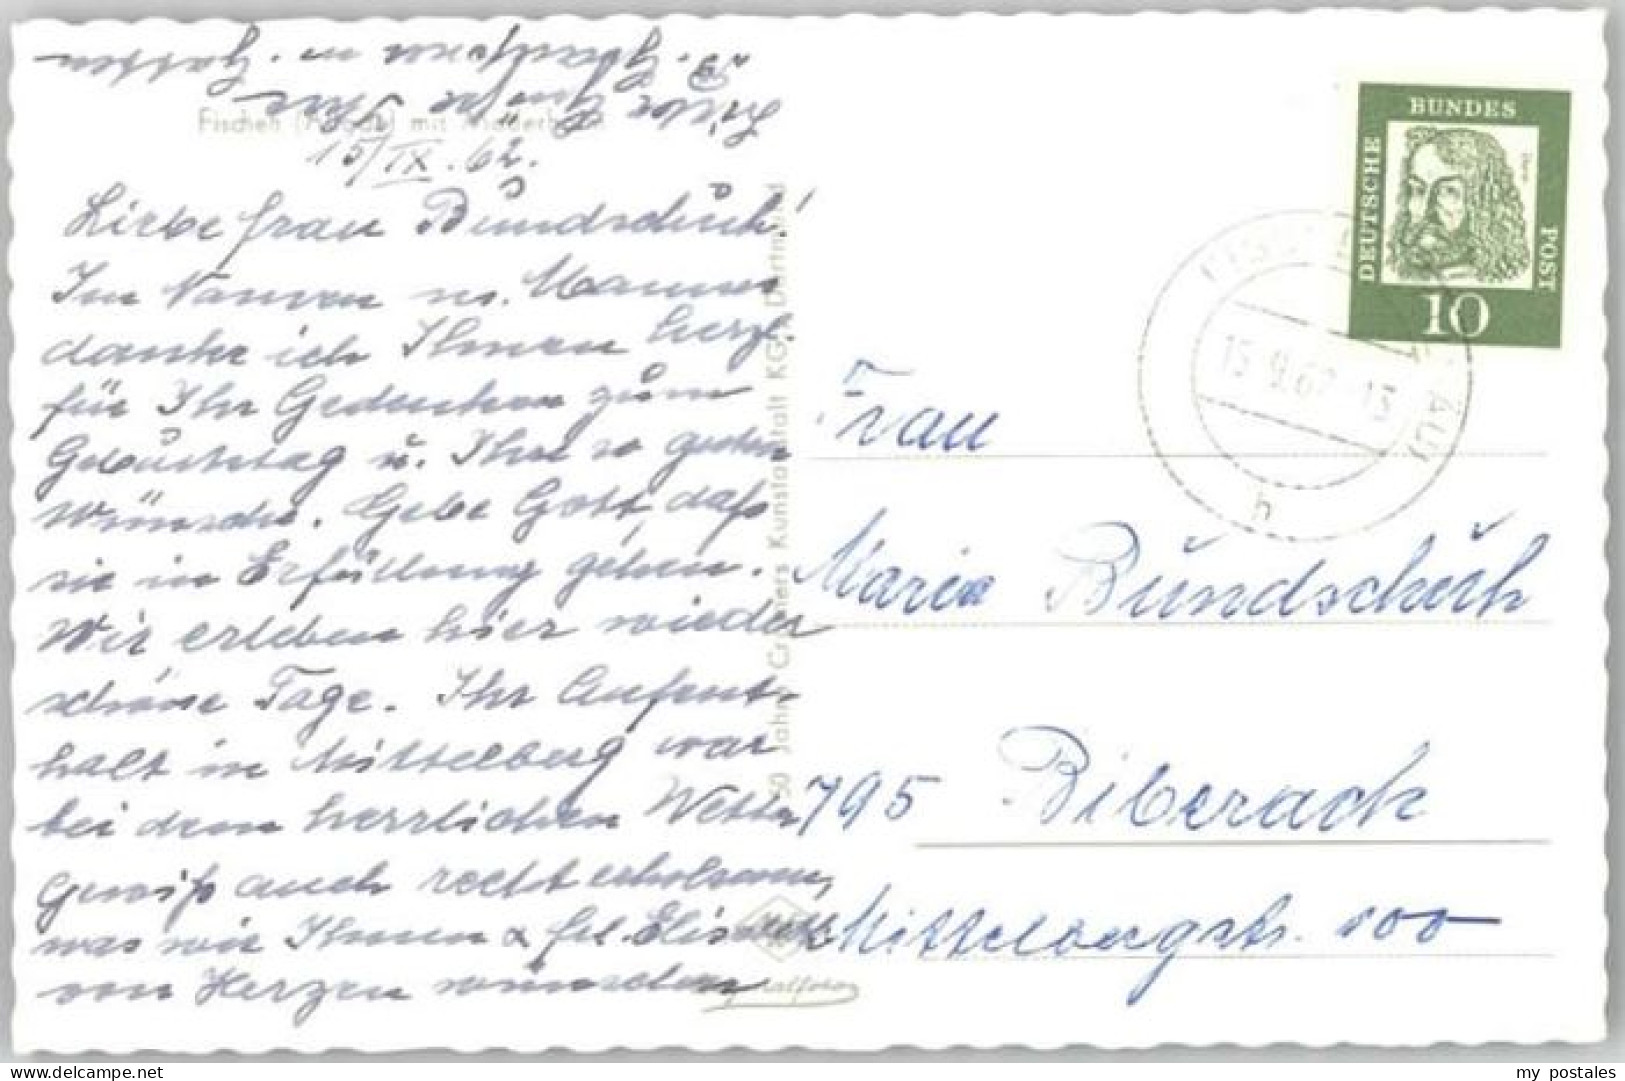 Fischen (Allgäu) mit
15/IX.62.
Liebe Frau Bundschuh!
Im Namen m. Mannes
danke ich Ihnen herzl.
für Ihr Gedenken zum
Geburtstag u. Ihre so guten
Wünsche. Gebe Gott, daß
sie in Erfüllung gehen.
Wir erleben hier wieder
schöne Tage. Ihr Aufent-
halt in Mittelberg war
bei dem herrlichen Wetter
Gewiß auch recht erholsam,
was wir Ihnen & frl. Elisabeth
von Herzen wünschen
Liebe Grüße Ihre
u. Gatten
50 Jahre Cramers Kunstanstalt KG, Dortmund
DEUTSCHE
BUNDES
POST
10
15.9.62-13
h
Frau
Maria Bundschuh
795 Biberach
Mittelbergstr. 100
my postales
© delcampe.net